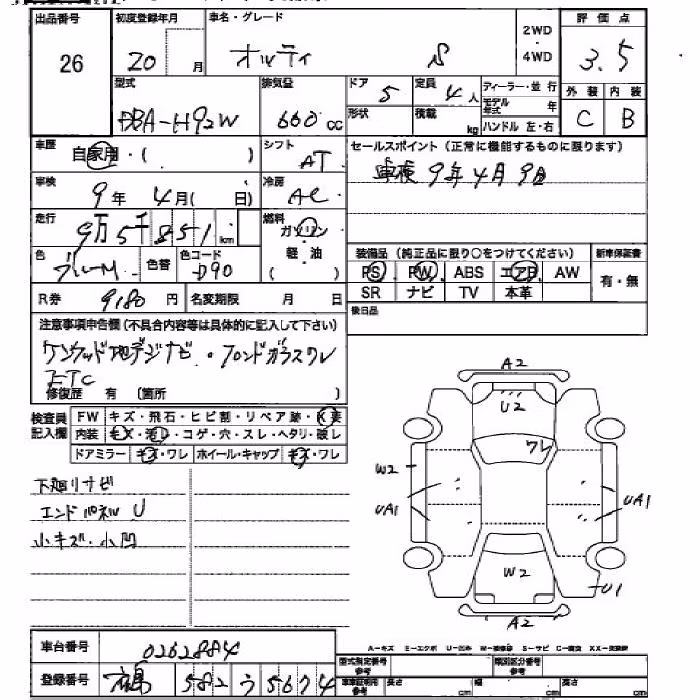 出品番号 26 初度登録年月 20 月 車名・グレード オッティ S 2WD・4WD 評価点 3.5
型式 DBA-H92W 排気量 660 cc ドア 5 定員 4人 ディーラー・並行 外装 C 内装 B
形状 積載 kg モデル年式 年 ハンドル 左・右
車歴 自家用・( ) シフト AT セールスポイント (正常に機能するものに限ります)
車検 9年 4月( 日) 冷房 AC 車検 9年4月9日
走行 9万5千851 km 燃料 ガソリン・軽・油
色 ブルーM 色替 色コード D90 装備品 (純正品に限り○をつけてください) 新車保証書
PS PW ABS エアB AW 有・無
R券 9180 円 名変期限 月 日 SR ナビ TV 本革
注意事項申告欄 (不具合内容等は具体的に記入して下さい) 後日品
ケンウッド地デジナビ・フロントガラスワレ
ETC
修復歴 有 〔箇所 〕
検査員記入欄 FW キズ・飛石・ヒビ割・リペア跡・
内装 キズ・汚レ・コゲ・穴・スレ・ヘタリ・破レ
ドアミラー キズ・ワレ ホイール・キャップ キズ・ワレ
A2
U2
ワレ
W2
UA1 UA1
W2
U1
A2
下廻りサビ
エンドパネル U
小キズ・小凹
車台番号 0262884
登録番号 582 う 5674
A-キズ E-エクボ U-凹み S-サビ
型式指定番号 参考 類別区分番号 参考
車庫証明用 参考 長さ cm 幅 cm 高さ cm